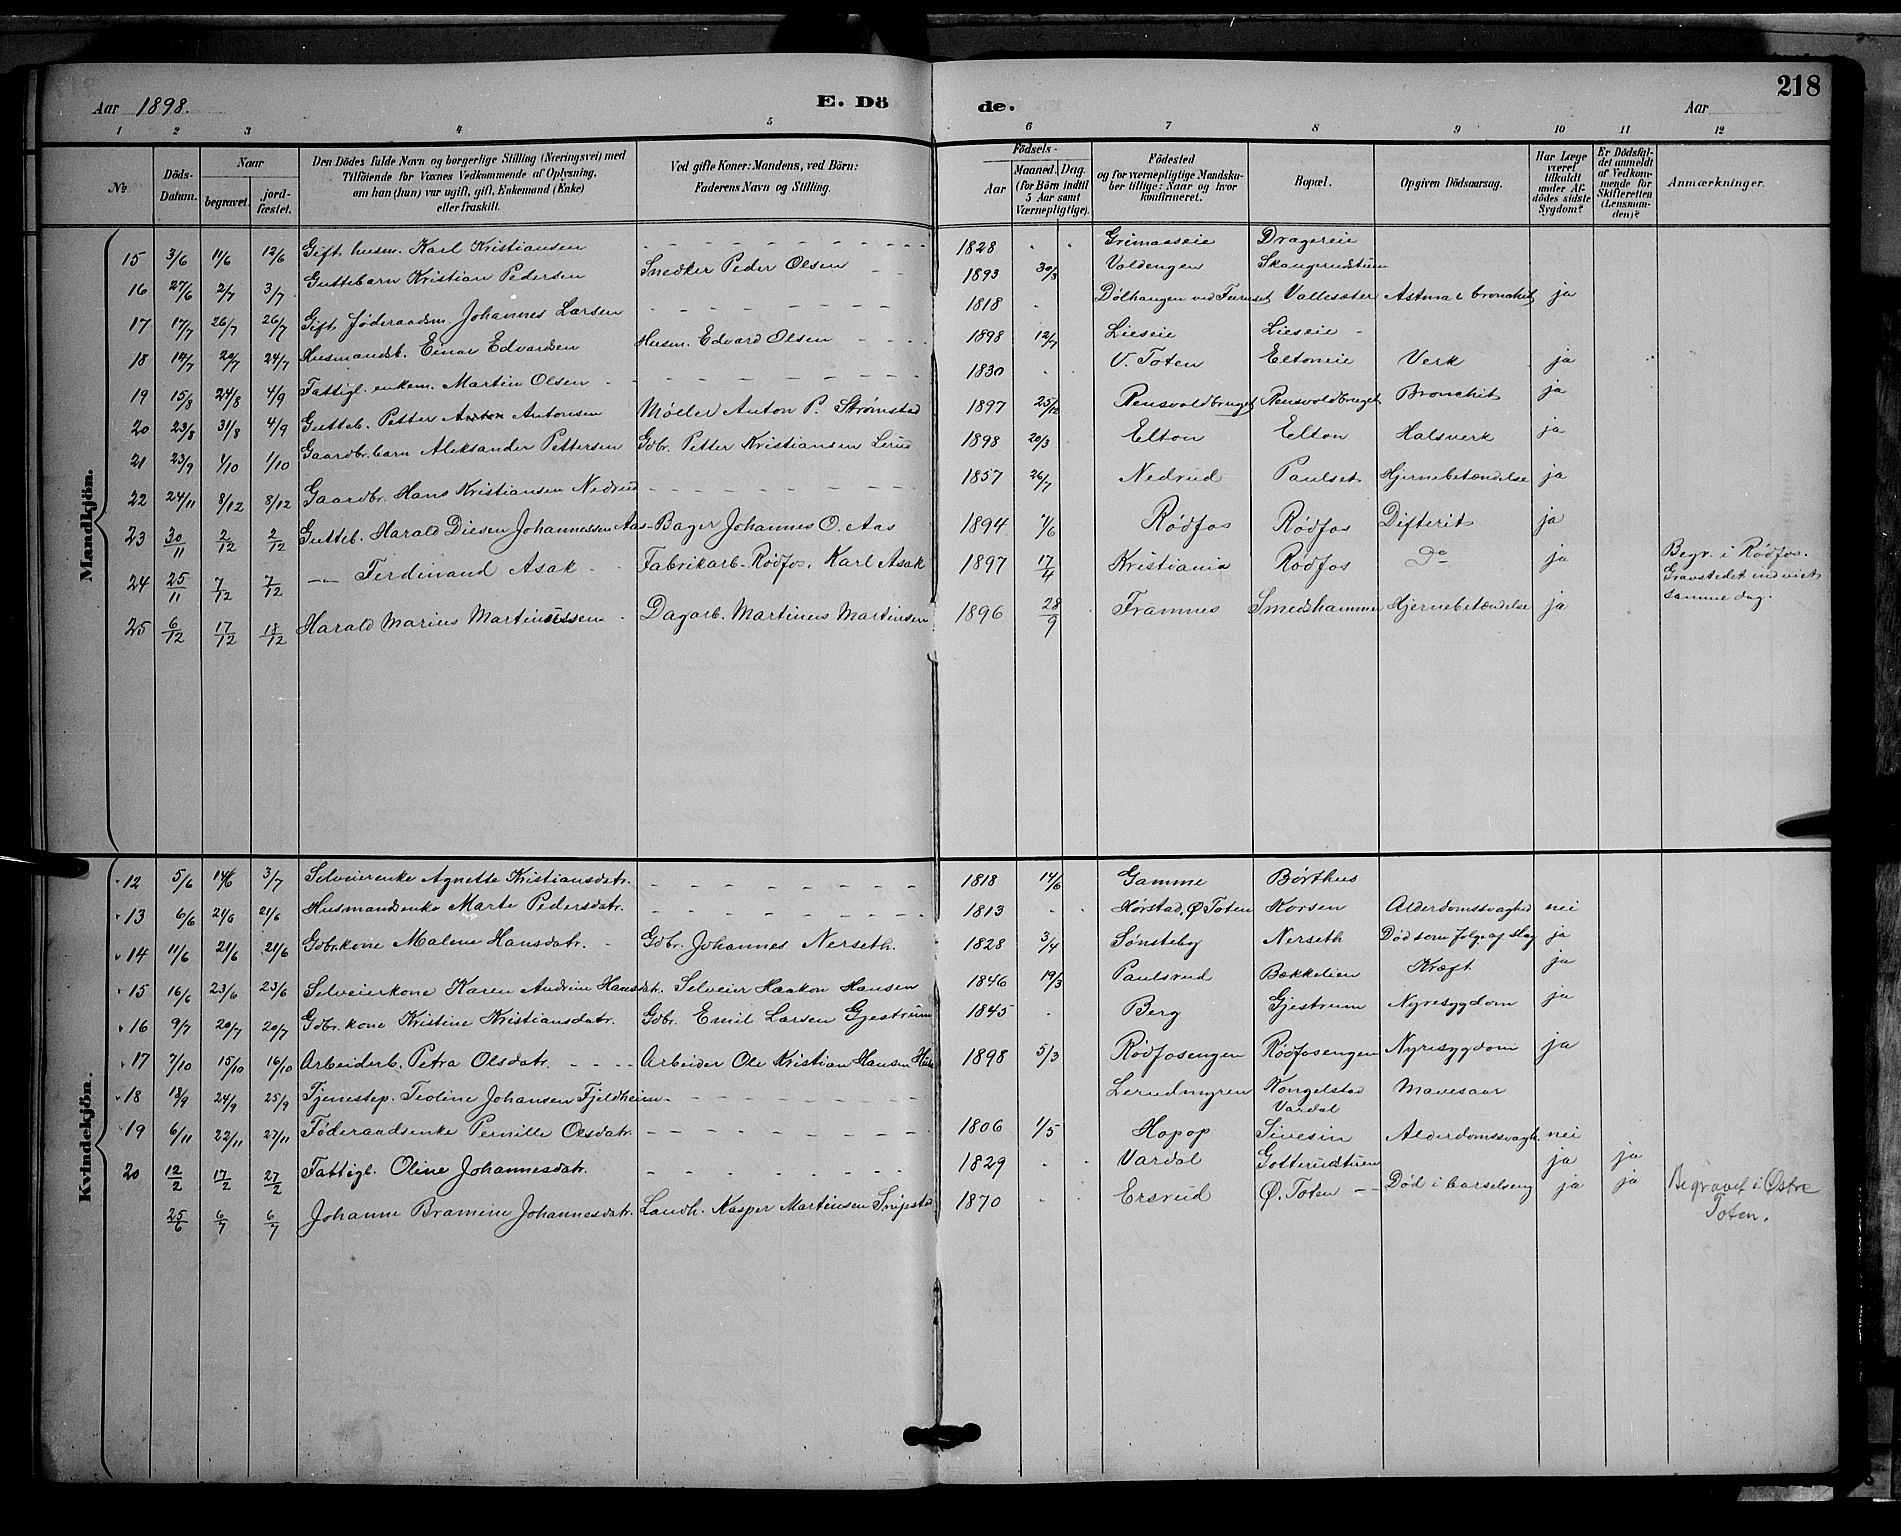 Aar 1898. E. Dö de. Aar 218
1 2 3 4 5 6 7 8 9 10 11 12
№ Döds-Datum. Naar begravet. jordfæstet. Den Dödes fulde Navn og borgerlige Stilling (Næringsvei) med Tilföiende for Voxnes Vedkommende af Oplysning, om han (hun) var ugift, gift, Enkemand (Enke) eller fraskilt. Ved gifte Koner: Mandens, ved Börn: Faderens Navn og Stilling. Födsels- Aar Maaned. Dag. (for Börn indtil 5 Aar samt Værnepligtige). Födested og for værnepligtige Mandskaber tillige: Naar og hvor konfirmeret. Bopæl. Opgiven Dödsaarsag. Har Læge været tilkaldt under Afdödes sidste Sygdom? Er Dödsfaldet anmeldt af Vedkommende for Skifteretten (Lensmanden)? Anmærkninger.
Mandkjön.
15 3/6 11/6 12/6 Gift husm. Karl Kristiansen 1828 Grimaaseie Dragereie
16 27/6 2/7 3/7 Guttebarn Kristian Pedersen Snedker Peder Olsen 1893 30/3 Voldengen Skangerudstuen
17 17/7 26/7 26/7 Gift føderaadsm. Johannes Larsen 1818 Dølhaugen ved Vallesæter Astma & bronchit ja
18 12/7 20/7 24/7 Husmandsb. Einar Edvardsen Husm. Edvard Olsen 1898 12/7 Lieseie Lieseie
19 15/8 24/8 4/9 Fattigl. enkem. Martin Olsen 1830 V. Toten Eltoneie Verk ja
20 23/8 31/8 4/9 Gutteb. Petter Anton Antonsen Møller Anton P. Strømstad 1897 25/12 Rensvoldbruget Rensvoldbruget Bronchit ja
21 23/9 4/10 1/10 Gaardbr. barn Aleksander Pettersen Gdbr. Petter Kristiansen Lerud 1898 20/3 Elton Elton Halsverk ja
22 24/11 8/12 8/12 Gaardbr. Hans Kristiansen Nedrud 1857 26/7 Nedrud Paulset Hjernebetændelse ja
23 30/11 2/12 2/12 Gutteb. Harald Diesen Johannessen Aas Bager Johannes O. Aas 1894 Rødfos Rødfos Difterit ja
24 25/11 7/12 7/12 —"— Ferdinand Asak Fabrikarb. Rødfos, Karl Asak 1897 17/4 Kristiania Rødfos Do ja Begr. i Rødfos. Gravstedet indviet samme dag.
25 6/12 17/12 18/12 Harald Marius Martinussen Dagarb. Martinus Martinsen 1896 28/9 Framnes Smedshammer Hjernebetændelse ja
Kvindekjön.
12 5/6 14/6 3/7 Selveierenke Agnette Kristiansdatr. 1818 14/6 Gamme Børthus
13 6/6 21/6 21/6 Husmandsenke Marte Pedersdatr. 1813 Hørstad, Ø. Toten Korsen Alderdomssvaghed nei
14 11/6 21/6 21/6 Gdbr.kone Malene Hansdatr. Gdbr. Johannes Nerseth. 1828 3/4 Sønsteby Nerseth Død som følge af slag ja
15 16/6 23/6 23/6 Selveierkone Karen Andrine Hansdatr. Selveier Haakon Hansen 1846 19/3 Paulsrud Bækkelien Kræft ja
16 9/7 20/7 20/7 Gdbr. kone Kristine Kristiansdatr. Gdbr. Emil Larsen Gjestrum 1845 Berg Gjestrum Nyresygdom ja
17 7/10 15/10 16/10 Arbeiderb. Petra Olsdatr. Arbeider Ole Kristian Hansen 1898 5/3 Rødfosengen Rødfosengen Nyresygdom ja
18 18/9 24/9 25/9 Tjenestep. Teoline Johansen Fjeldheim Lerudmyren Kongelstad Vardal Mavesaar
19 6/11 22/11 27/11 Føderaadsenke Pernille Olsdatr. 1806 1/5 Hopop Sivesin Alderdomssvagh. nei
20 12/2 17/2 27/2 Fattigl. Oline Johannesdatr. 1829 Vardal Gotterudstuen ja ja
25/6 6/7 6/7 Johanne Bramine Johannesdatr. Landh. Kasper Martinsen Snipstad 1870 Ersrud Ø. Toten Død i barselseng ja ja Begravet i Østre Toten.